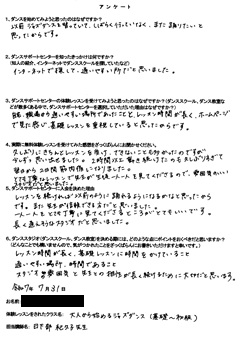 アンケート
1.ダンスを始めてみようと思ったのはなぜですか?
以前ジャズダンスを習っていて、しばらく行っていなく、また踊りたいと
思ったからです。
2.ダンスサポートセンターを知ったきっかけは何ですか?
(知人の紹介、インターネットでダンススクールを探していたなど)
インターネットで探して、通いやすい所だと思いました。
3.ダンスサポートセンターの体験レッスンを受けてみようと思ったのはなぜですか?(ダンススクール、ダンス教室な
どが数多くある中で、ダンスサポートセンターを選択していただいた理由はなぜですか?)
駅、職場から通いやすい場所であったこと、レッスン時間が長く、ホームページ
で見た感じ、基礎レッスンを重視していると思ったからです。
4.実際に無料体験レッスンを受けてみた感想をざっくばらんにお聞かせください。
久しぶりにきちんとレッスンを受けて、できないことも多かったのですが
5.ダンスサポートセンターに入会を決めた理由
レッスンを続ければ以前のように踊れるようになるかなと思ったから
です。また
一人一人とても丁寧に見てくださるところがとてもいいです。
6.ダンススタジオ(ダンススクール、ダンス教室)を決める際には、どのような点にポイントをおくべきだと思いますか?
レッスン時間が長く、基礎レッスンに時間をかけていること
通いやすい場所、時間であること
スタジオの雰囲気と先生との相性が長く続けるためには大切だと思います。
令和7年7月31日
お名前
体験レッスンをされたクラス名: 大人から始めるジャズダンス(基礎〜初級)
担当講師名: 日下部 紀久子先生